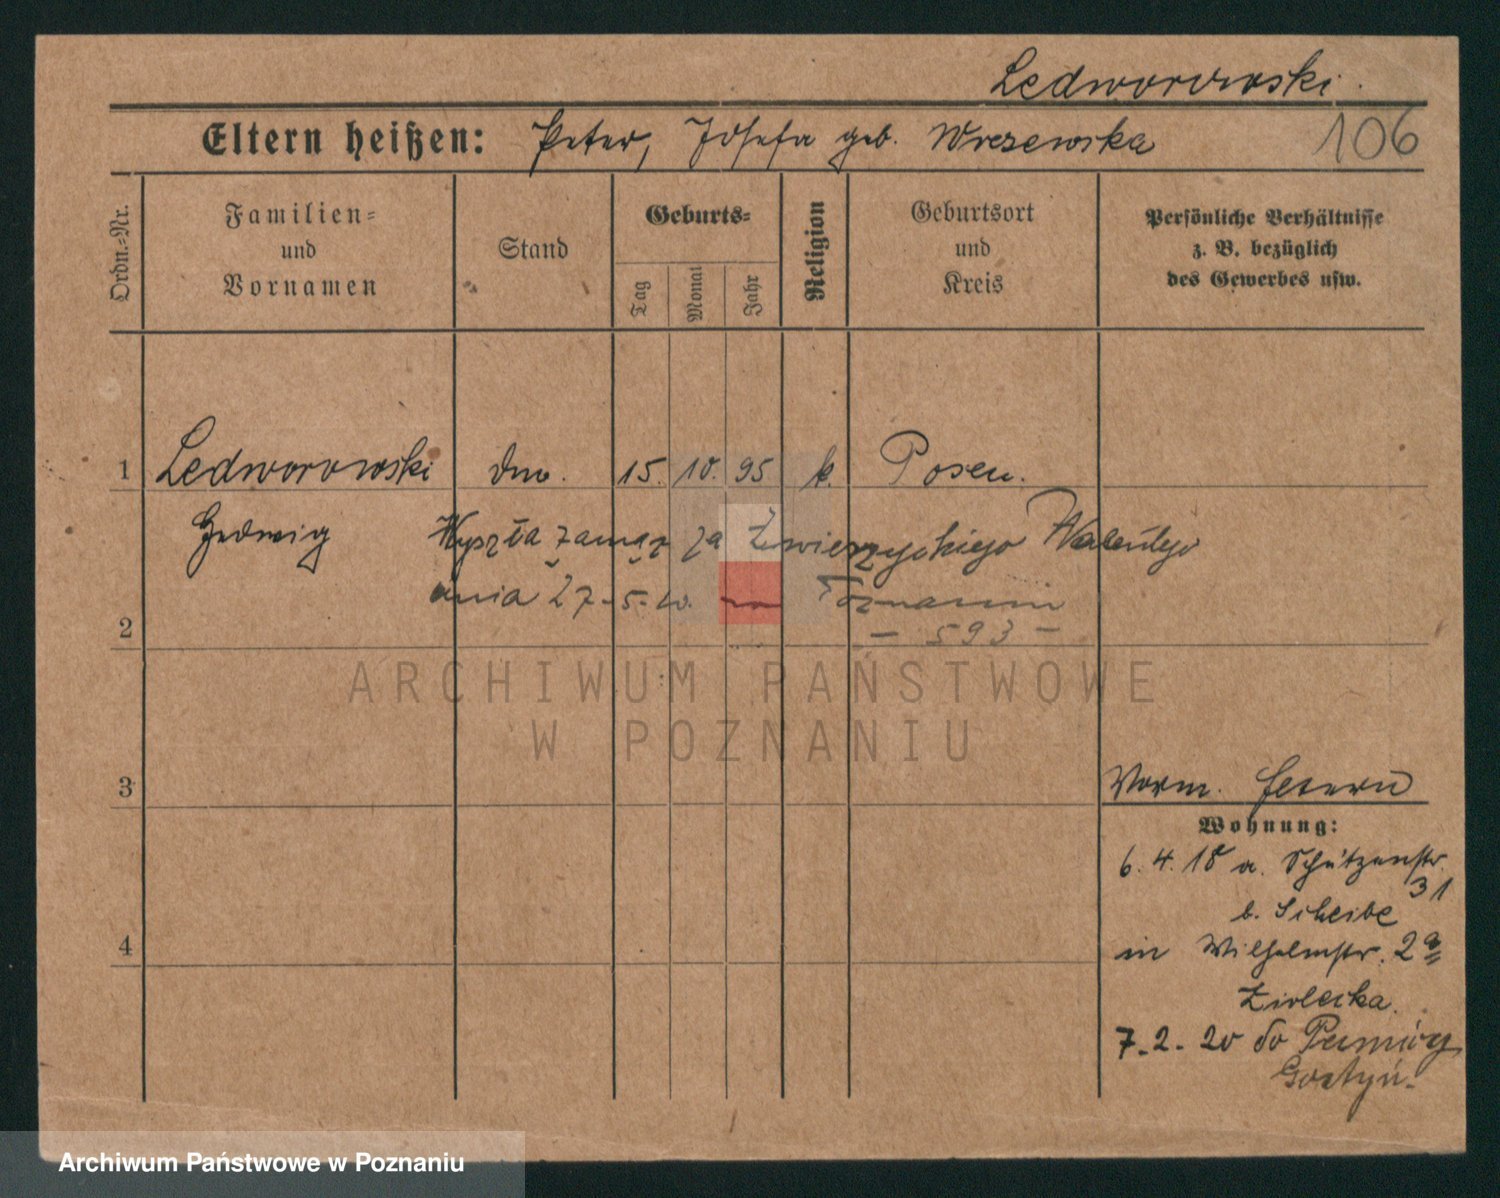 Ledworowski.
Eltern heißen: Peter, Josefa geb. Wrzesewska
106
Ordn.-Nr.
Familien- und Vornamen
Stand
Geburts-
Tag
Monat
Jahr
Religion
Geburtsort und Kreis
Persönliche Verhältnisse
z. B. bezüglich
des Gewerbes usw.
1 Ledworowski 15. 10. 95 k. Posen.
Hedwig Wyszła zamąż za Zwierzyckiego Walentego
dnia 27-5-20. Poznaniu
— 593 —
2
ARCHIWUM PAŃSTWOWE
W POZNANIU
3
Vorm.
Wohnung:
6. 4. 18 a. Schützenstr.
31
b. Scheibe
in Wilhelmstr. 2a
Ziolecka.
4
7-2-20 do
Gostyń.
Archiwum Państwowe w Poznaniu